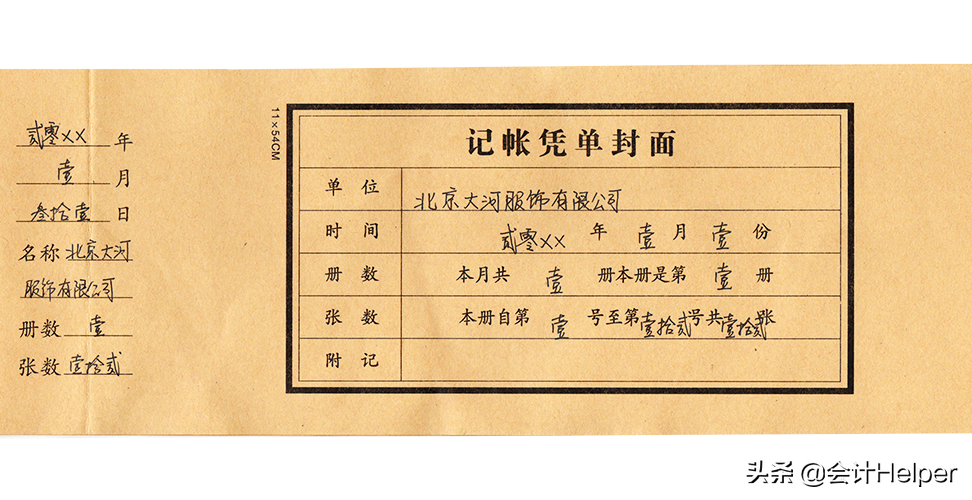 贰零××年
壹月
叁拾壹日
名称北京大河
服饰有限公司
册数壹
张数壹拾贰
11×54CM
记帐凭单封面
单位 北京大河服饰有限公司
时间 贰零××年壹月壹份
册数 本月共壹册本册是第壹册
张数 本册自第壹号至第壹拾贰号共壹拾贰张
附记
头条 @会计Helper